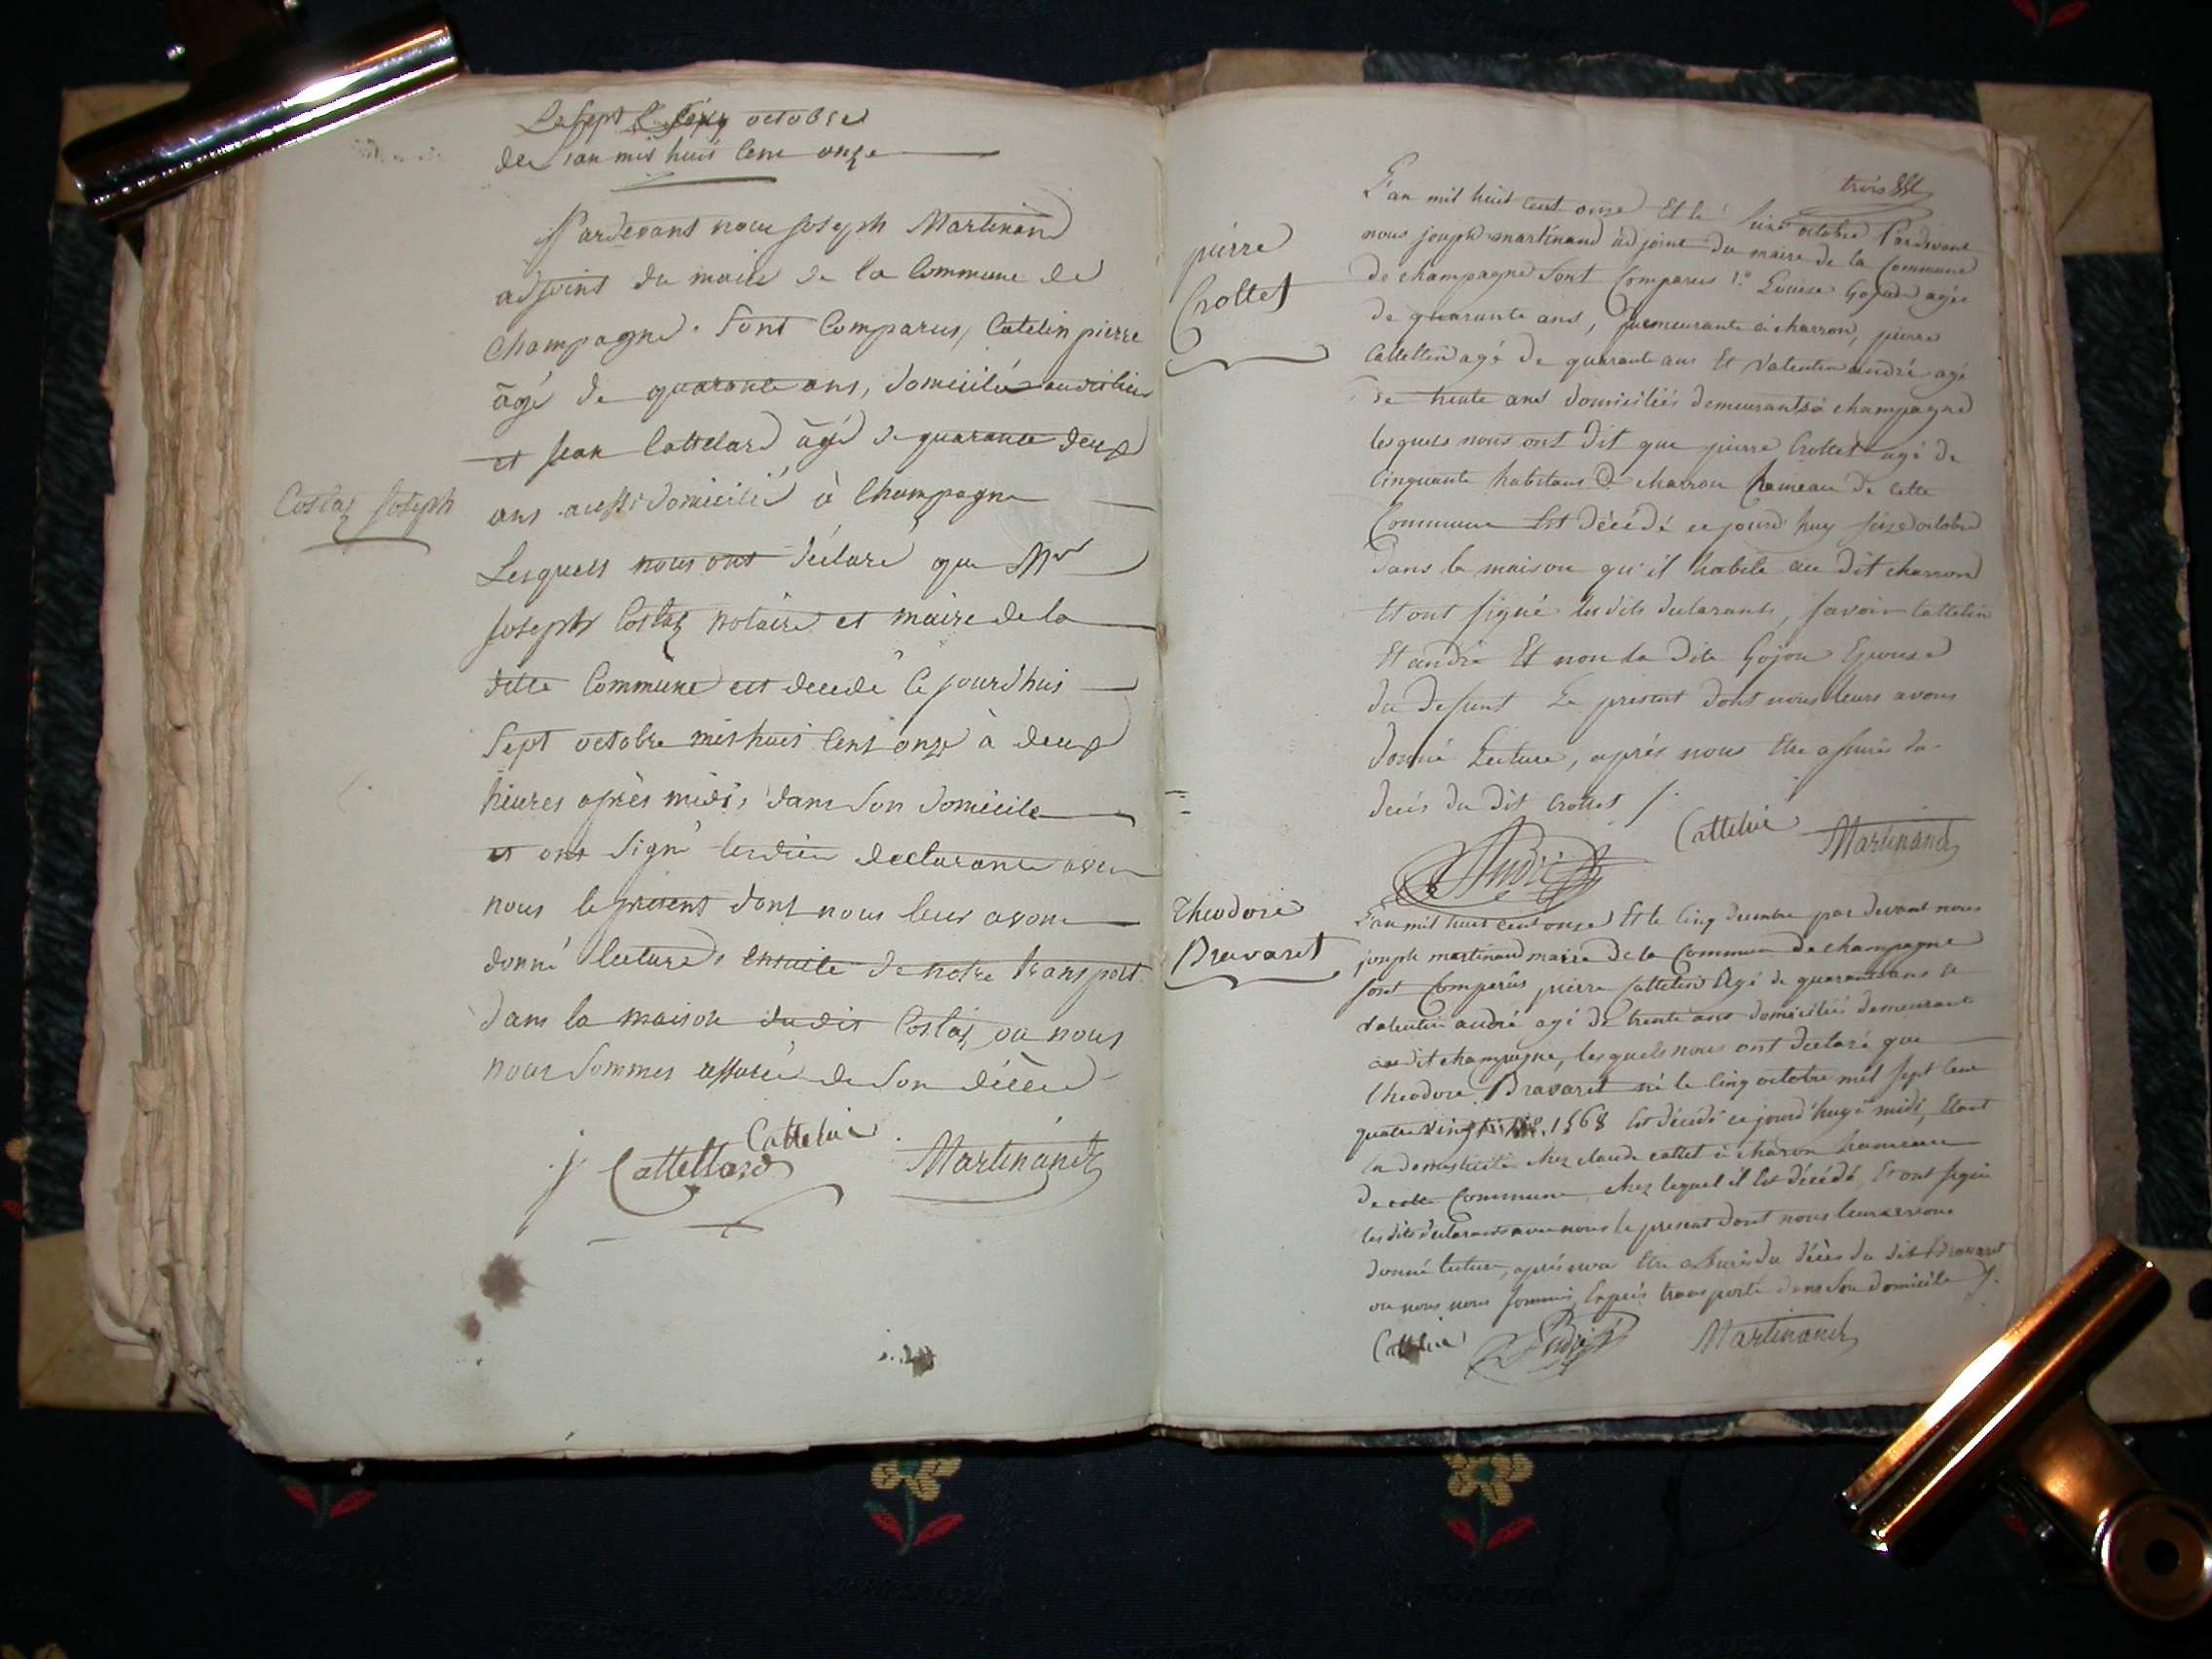 Le sept octobre
de l'an mil huit cent onze
Pardevant nous Joseph Martinand
adjoint du maire de la Commune de
Champagne. Sont Comparus, Catelin pierre
âgé de quarante ans, domicilié audit lieu
et Jean Cattelard âgé de quarante deux
ans aussi domicilié à Champagne
Costaz Joseph
Lesquels nous ont déclaré que Mr
Joseph Costaz notaire et maire de la
ditte Commune est decedé ce jourd'hui
Sept octobre mil huit cent onze à deux
heures après midi, dans son domicile
et ont signé lesdits declarants avec
nous le présent dont nous leur avons
donné lecture, ensuite de notre transport
dans la maison dudit Costaz, ou nous
nous sommes assuré de son décès
Cattelin
j Cattellard Martinand
trois
pierre
Crottet
L'an mil huit cent onze Et le seize octobre Pardevant
nous joseph martinand adjoint du maire de la Commune
de champagne Sont Comparus 1.° Louise Gojon agée
de quarante ans, demeurante à charron, pierre
Cattelin agé de quarante ans Et Valentin andré agé
de trente ans domiciliés demeurants à champagne
lesquels nous ont dit que pierre Crottet agé de
Cinquante habitant à charron hameau de cette
Commune Est décédé ce jourd'huy seize octobre
dans la maison qu'il habite au dit charron
Et ont signé les dits declarants, savoir Cattelin
Et andré Et non la dite Gojon Epouse
du defunt Le present dont nous leurs avons
donné Lecture, après nous Etre assurés du
decès du dit Crottet /.
André Cattelin Martinand
Theodore
Bravaret
L'an mil huit cent onze Et le Cinq decembre par devant nous
joseph martinand maire de la Commune de champagne
sont Comparus pierre Cattelin Agé de quarante ans et
Valentin andré agé de trente ans domiciliés demeurant
au dit champagne, lesquels nous ont declaré que
theodore Bravaret né le Cinq octobre mil sept cent
quatre vingt 1768 Est décédé ce jourd'huy à midi, Etant
en domesticité chez claude cattet à charon hameau
de cette Commune chez lequel il Est décédé, Et ont signé
les dits declarants avec nous le present dont nous leurs avons
donné lecture, après nous Etre assuré du décès du dit Bravaret
ou nous nous sommes Exprès transporté dans son domicile /.
Cattelin André Martinand